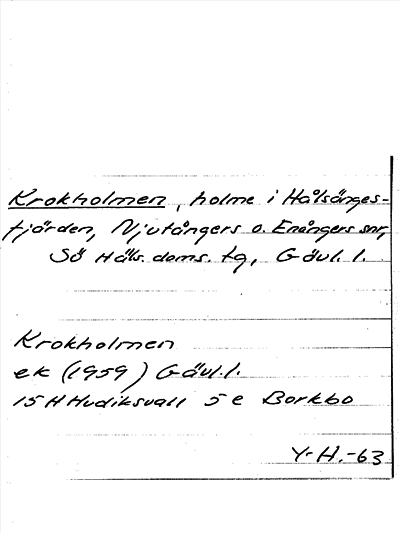 Krokholmen, holme i Hålsänges-
fjärden, Njutångers o. Enångers snr,
Sö Häls. doms. tg, Gävl. l.
Krokholmen
ek (1959) Gävl. l.
15 H Hudiksvall 5 e Borkbo
Y-H.-63